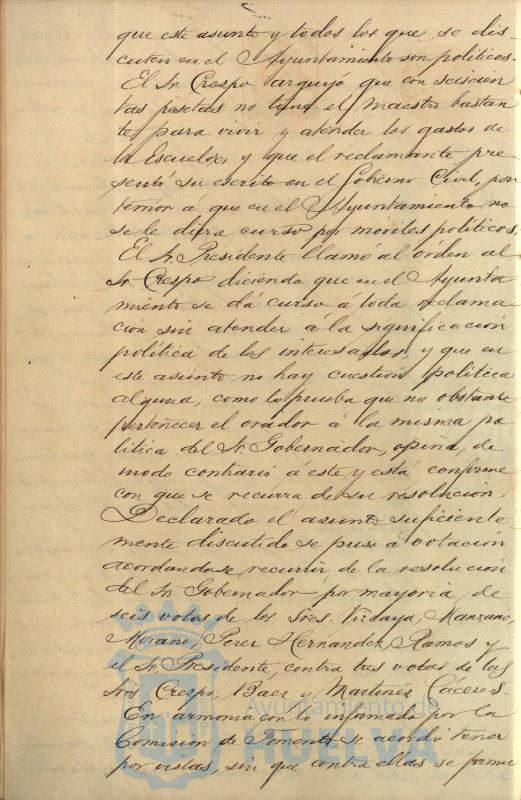 que este asunto y todos los que se dis-
cuten en el Ayuntamiento son políticos.
El Sr. Crespo arguyó que con seiscien
tas pesetas no tiene el maestro bastan
te para vivir y atender los gastos de
la Escuela, y que el reclamante pre-
sentó su escrito en el Gobierno Civil, por
temor á que en el Ayuntamiento no
se le diera curso por móviles políticos.
El Sr. Presidente llamó al órden al
Sr. Crespo diciendo que en el Ayunta
miento se dá curso á toda reclama
cion sin atender á la significacion
política de los interesados, y que en
este asunto no hay cuestion política
alguna, como lo prueba que no obstante
pertenecer el orador á la misma po
lítica del Sr. Gobernador, opina, de
modo contrario á este y está conforme
con que se recurra de su resolucion.
Declarado el asunto suficiente-
mente discutido se puso á votación
acordandose recurrir de la resolucion
del Sr. Gobernador por mayoria, de
seis votos de los Sres. Vizcaya, Manzano,
Morano, Perez Hernandez, Ramos y
el Sr. Presidente, contra tres votos de los
Sres Crespo, Baez y Martinez Cáceres.
En armonia con lo informado por la
Comision de Fomento, se acordó tener
por vistas, sin que contra ellas se formu
Ayuntamiento de
HUELVA